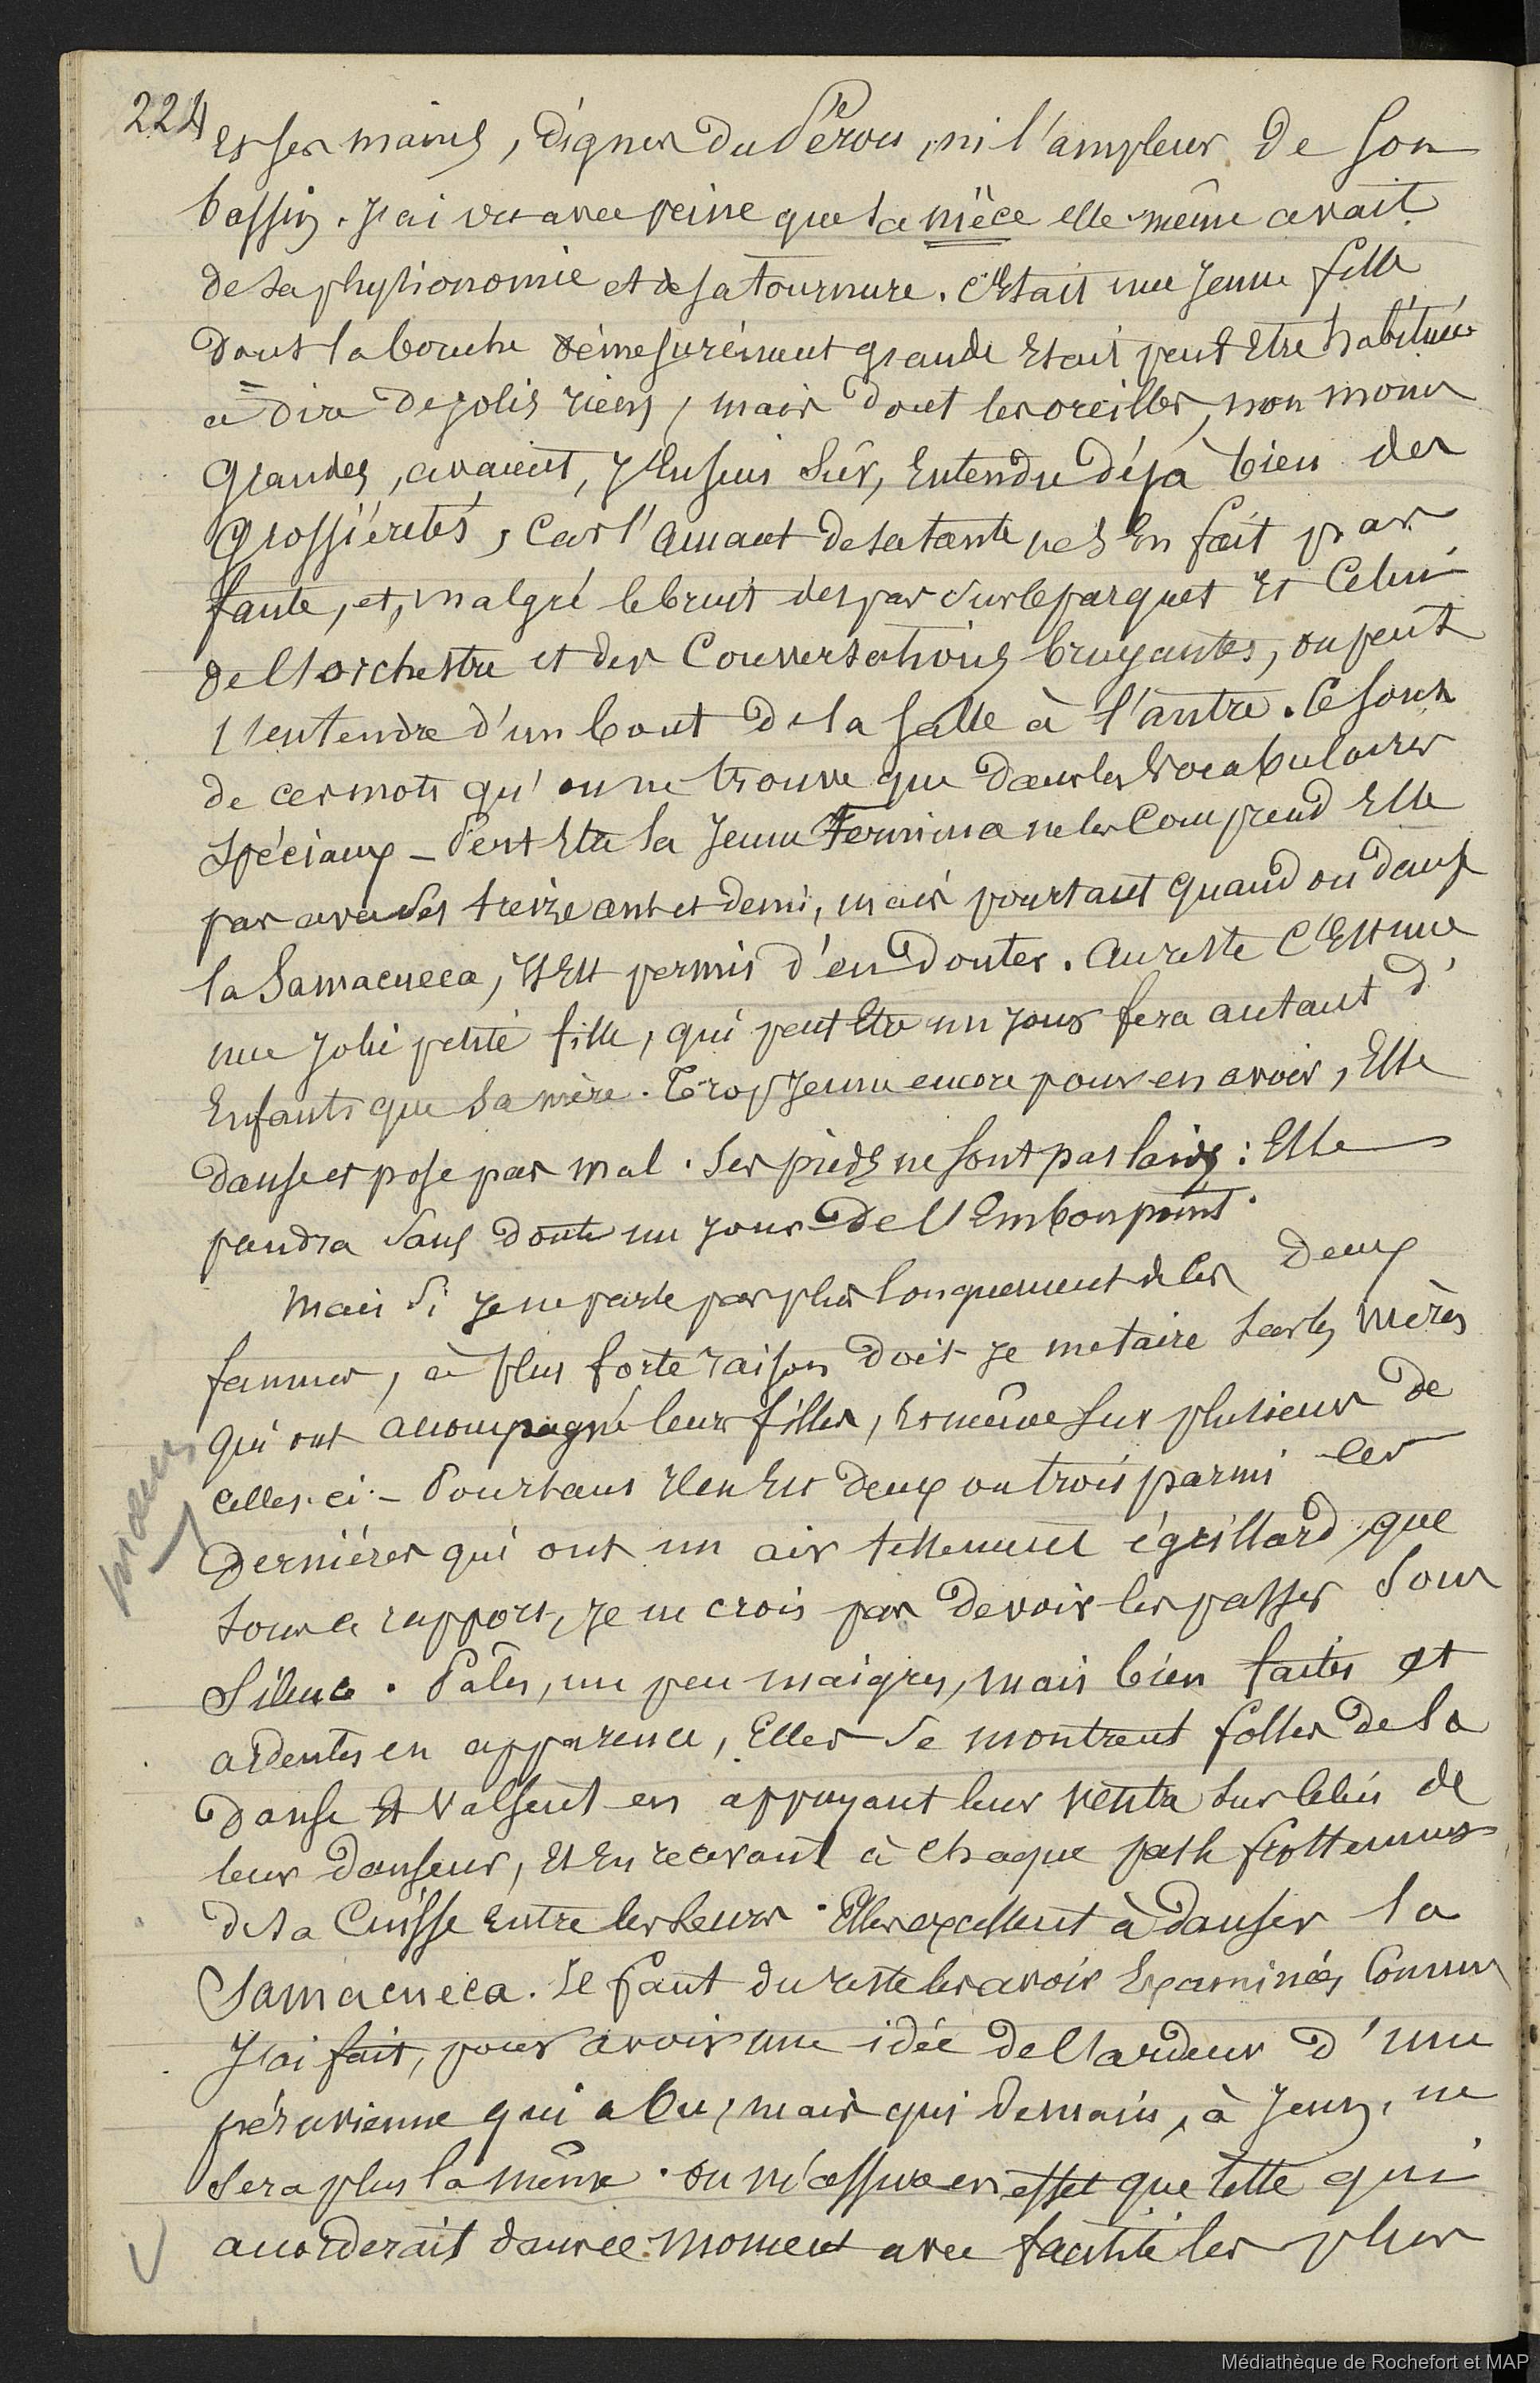 224
et ses mains, dignes du Pérou, ni l'ampleur de son
bassin. J'ai vu avec peine que sa nièce elle-même avait
de sa physionomie et de sa tournure. C'était une jeune fille
dont la bouche démesurément grande était peut être habituée
à dire de jolis riens, mais dont les oreilles, non moins
grandes, avaient, j'en suis sûr, entendu déjà bien des
grossièretés, car l'amant de sa tante ne s'en fait pas
faute, et, malgré le bruit des pas sur le parquet et celui
de l'orchestre et des conversations bruyantes, on peut
l'entendre d'un bout de la salle à l'autre. Ce sont
de ces mots qu'on ne trouve que dans les vocabulaires
spéciaux _ Peut être la jeune Fermina ne les comprend elle
pas avec ses treize ans et demi, mais pourtant quand on danse
la Samacueca, il est permis d'en douter. Au reste c'est une
une jolie petite fille, qui peut être un jour fera autant d'
enfants que sa mère. Trop jeune encore pour en avoir, elle
danse et pose pas mal. Ses pieds ne sont pas laids : elle
prendra sans doute un jour de l'embonpoint.
Mais si je ne parle pas plus longuement de ces deux
femmes, à plus forte raison dois-je me taire sur les mères
qui ont accompagné leurs filles, et même sur plusieurs de
celles-ci _ Pourtant il en est deux ou trois parmi ces
dernières qui ont un air tellement égrillard que
sous ce rapport, je ne crois pas devoir les passer sous
silence. Pâles, un peu maigres, mais bien faites et
ardentes en apparence, elles se montrent folles de la
danse et valsent en appuyant leur ventre sur celui de
leur danseur, et en recevant à chaque pas le frottement
de sa cuisse entre les leurs. Elles excellent à danser la
Samacueca. Il faut du reste les avoir examinées comme
j'ai fait, pour avoir une idée de l'ardeur d'une
péruvienne qui a bu, mais qui demain, à jeun, ne
sera plus la même. On m'assure en effet que telle qui
accorderait dans ce moment avec facilité les plus
mœurs
Médiathèque de Rochefort et MAP